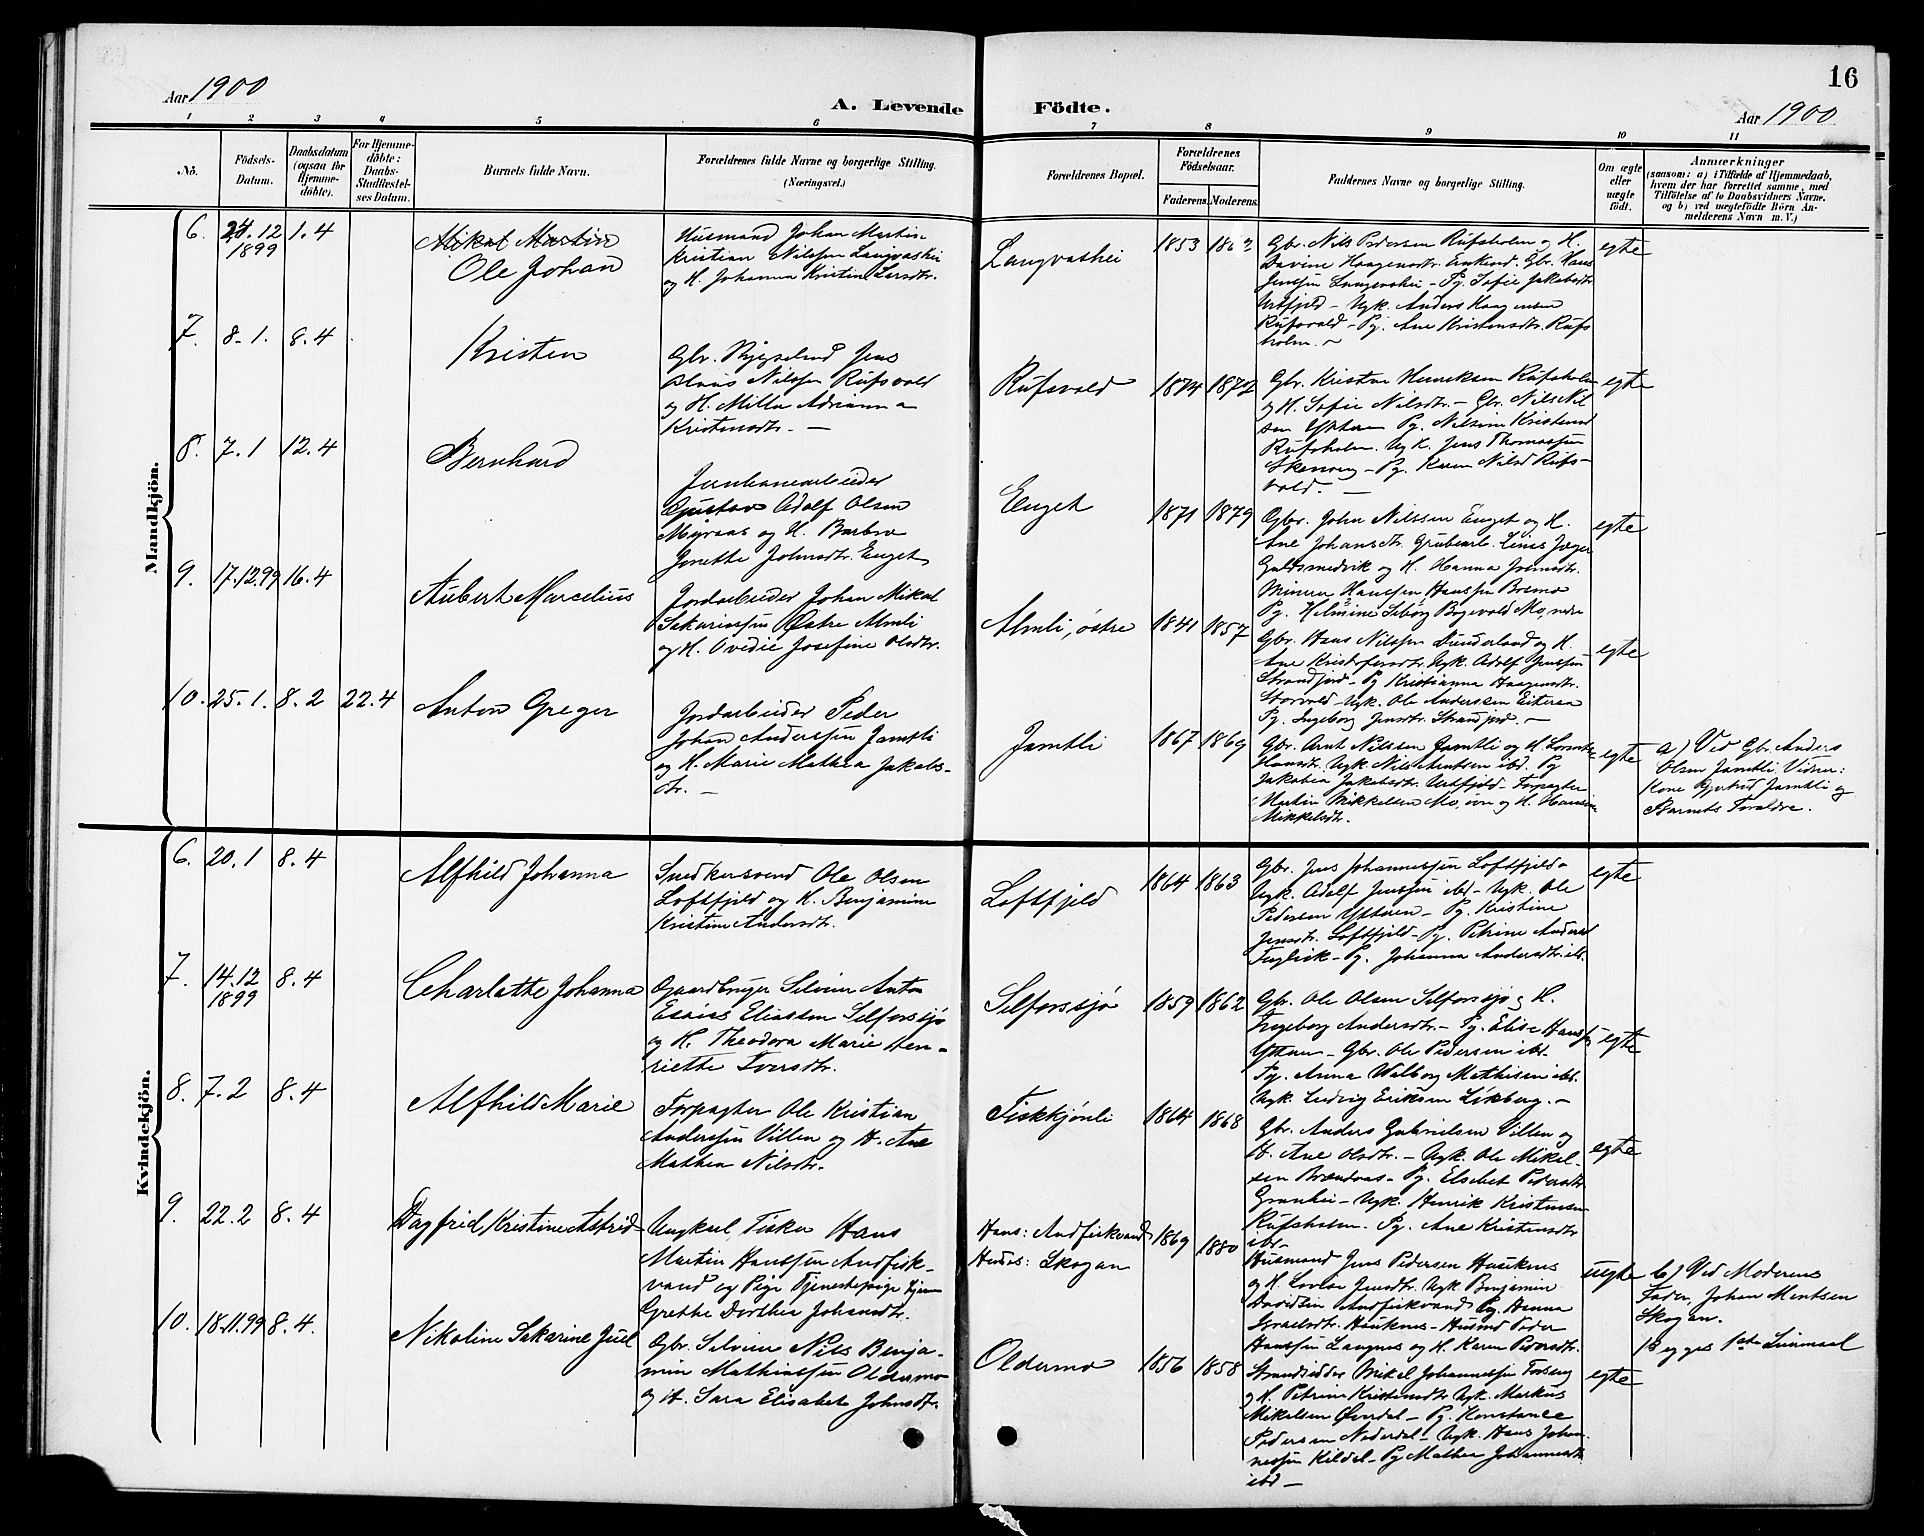 16
Aar 1900
A. Levende Födte.
Aar 1900
1 2 3 4 5 6 7 8 9 10 11
No.
Födsels-
Datum.
Daabsdatum
(ogsaa for
Hjemme-
döbte).
For Hjemme-
döbte:
Daabs-
Stadfæstel-
ses Datum.
Barnets fulde Navn.
Forældrenes fulde Navne og borgerlige Stilling.
(Næringsvei.)
Forældrenes Bopæl.
Forældrenes
Födselsaar.
Faderens. Moderens.
Faddernes Navne og borgerlige Stilling.
Om ægte
eller
uægte
födt.
Anmærkninger
(saasom: a) i Tilfælde af Hjemmedaab,
hvem der har forrettet samme, med
Tilföielse af to Daabsvidners Navne,
og b) ved uægtefödte Börn An-
melderens Navn m. V.)
Mandkjön.
6. 24.12
1899
1.4
Mikal Martin
Ole Johan
Husmand Johan Martin
Kristian Nilssen Langvashei
og H. Johanna Kristine Larsdtr.
Langvashei
1853
Gbr. Nils Pedersen Rufsholm og H.
Davine Haagensdtr. Gbr. Hans
Jenssen Langvashei – Pg. Sofie Jakobsdtr.
Urtfjeld – Ugk. Anders Haagensen
Rufsvold – Pg. Ane Kristensdtr. Rufs
holm. –
egte
7. 8.1. 8.4
Kristen
Gbr. Jens
Nilssen Rufsvold
og H. Milla Adrianna
Kristensdtr. –
Rufsvold
1874 1872
Gbr. Kristen Henriksen Rufsholm
og H. Sofie Nilsdtr. – Gbr. Nils Nil
sen Ytteren Pg. Nilsine Kristensd
Rufsholm. Ugk. Jens Thomassen
– Pg. Karen Nilsd Rufs-
vold. –
egte
8. 7.1 12.4
Bernhard
Jernbanearbeider
Gustav Adolf Olsen
Myraas og H. Barbro
Jonette Johnsdtr. Enget
Enget
1871 1879
Gbr. John Nilssen Enget og H.
Ane Johansdtr. Grubearb. Linus Jæger
Guldsmedvik og H. Hanna Johnsdtr.
Minerer Hans Hanssen Bremo
Pg. Helmine Seborg Bogevold Mo, nedre
egte
9. 17.12.99 16.4
Aubert Marcelius
Jordarbeider Johan Mikal
Sakariassen Østre Almli
og H. Ovedie Josefine Olsdtr.
Almli, østre
1841 1857
Gbr. Hans Nilssen Dunderland og H.
Ane Kristofersdtr. Ugk. Adolf Jenssen
Strandjord – Pg Kristianna Haagensdtr.
Storvold – Ugk. Ole Anderssen Eiteraa
Pg. Ingeborg Jensdtr. Strandjord. –
egte
10. 25.1. 8.2 22.4
Anton Greger
Jordarbeider Peder
Johan Anderssen Jamtli
og H. Marie Mathea Jakobs-
dtr. –
Jamtli
1867 1869
Gbr. Arnt Nilssen Jamtli og H.
Hansdtr. Ugk. Nils Arntsen ibd. Pg
Jakobea Jakobsdtr. Urtfjeld – Forpagter
Martin Mikkelsen Mo, øvre og H. Hansine
Mikkelsdtr.
egte
a) Ved Gbr. Anders
Olsen Jamtli. Vidner:
Kone Gjertrud Jamtli og
Barnets Forældre.
Kvindekjön.
6. 20.1 8.4
Alfhild Johanna
Snedkersvend Ole Olsen
Loftfjeld og H. Benjamine
Kristine Andersdtr.
Loftfjeld
1864 1863
Gbr. Jens Johannessen Loftfjeld –
Ugk. Adolf Jenssen ibd. – Ugk. Ole
Pedersen Ytteren – Pg. Kristine
Jensdtr. Loftfjeld – Pg. Petrine Andersd
Fuglvik – Pg. Johanna Andersdtr. ib.
egte
7. 14.12
1899
8.4
Charlotte Johanna
Gaardbruger Selveier Anton
Esaias Eliassen Selforssjø
og H. Theodora Marie Hen-
riette Iversdtr.
Selforssjø
1859 1862
Gbr. Ole Olsen Selforssjø og H.
Ingeborg Andersdtr. – Pg. Elise Hanssen
Ytteren – Gbr. Ole Pedersen ibd.
Pg. Anna Walborg Mathisen ibd.
Ugk. Ludvig Eriksen Lekberg. –
egte
8. 7.2 8.4
Alfhild Marie
Forpagter Ole Kristian
Anderssen Villen og H. Ane
Mathea Nilsdtr.
Fiskkjønli
1864 1868
Gbr. Anders Gabrielsen Villen og
H. Ane Olsdtr. – Ugk. Ole Mikal-
sen Brændvas – Pg. Elsebet Pedersdtr.
Granhei – Ugk. Henrik Kristensen
Rufsholm. Pg. Ane Kristensdtr
ibd –
egte
9. 22.2 8.4
Dagfrid Kristine Astrid
Ungkarl Fisker Hans
Martin Hanssen Andfisk-
vand og Pige Tjenestepige
Grethe Dorthea Johansdtr.
Hans: Andfiskvand
Hendes: Skogan
1869 1880
Husmand Jens Pedersen Hauknes
og H. Lovise Jensdtr. Ugk. Benjamin
Davidsen Andfiskvand Pg. Hanna
Israelsdtr. Hauknes – Husmd Peder
Hanssen Langnes og H. Karen Pedersdtr.
uegte
b) Ved Moderens
Fader, Johan Mentsen
Skogan.
Begges 1ste Leiermaal
10. 18.11.99 8.4.
Nikoline Sakarine Juel
Gbr. Selveier Nils Benja-
min Mathiassen Oldermo
og H. Sara Elisabet Johnsdtr.
Oldermo
1856 1858
Strandsidder Mikal Johannessen Forsberg
og H. Petrine Kristensdtr Ugk. Markus
Mikalsen Øverdal – Pg. Konstance
Pedersen Nederdal – Ugk. Hans Johan-
nessen Kildal – Pg Mathea Johannesdtr.
ibd –
egte